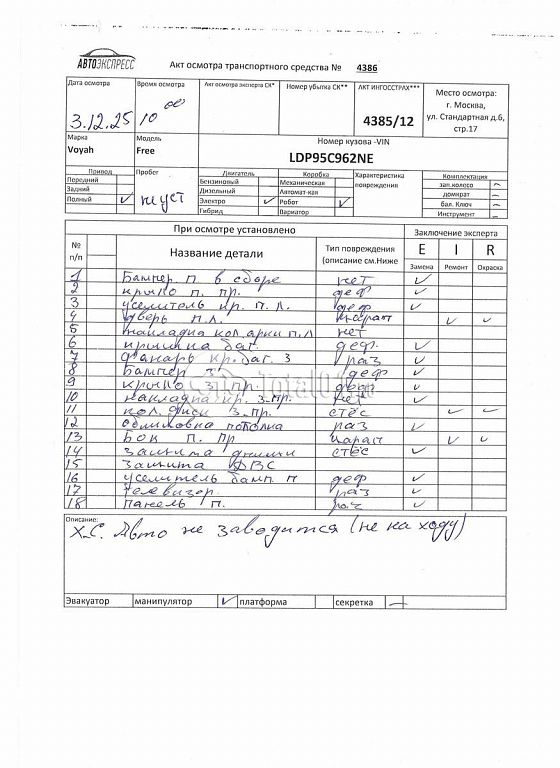 АВТОЭКСПРЕСС
Акт осмотра транспортного средства № 4386
Дата осмотра Время осмотра Акт осмотра эксперта СК* Номер убытка СК** АКТ ИНГОССТРАХ*** Место осмотра:
г. Москва,
ул. Стандартная д.6,
стр.17
3.12.25 10 00 4385/12
Марка Модель Номер кузова -VIN
Voyah Free LDP95C962NE
Привод Пробег Двигатель Коробка Характеристика повреждения Комплектация
Передний Бензиновый Механическая зап.колесо –
Задний Дизельный Автомат-кая домкрат –
Полный ✓ не уст Электро ✓ Робот ✓ бал. Ключ –
Гибрид Вариатор Инструмент –
При осмотре установлено Заключение эксперта
№ п/п Название детали Тип повреждения (описание см.Ниже E I R
Замена Ремонт Окраска
1 Бампер п. в сборе нет ✓
2 крыло п. пр. деф ✓
3 усилитель кр. п. л. деф ✓
4 дверь п.л. царап ✓ ✓
5 накладка кол.арки п.л нет
6 крышка баг. деф. ✓
7 Фонарь кр. баг. з раз ✓
8 Бампер з деф ✓
9 крыло з. пр деф ✓
10 накладка кр. з.пр. нет ✓
11 кол. диск з. пр. стёс ✓ ✓
12 облицовка потолка раз ✓
13 Бок п. пр царап ✓ ✓
14 защита днища стёс ✓
15 защита ДВС
16 усилитель бамп. п деф ✓
17 телевизор. раз ✓
18 панель п. раз ✓
Описание:
Х.С. Авто не заводится (не на ходу)
Эвакуатор манипулятор ✓ платформа секретка –
TotalO